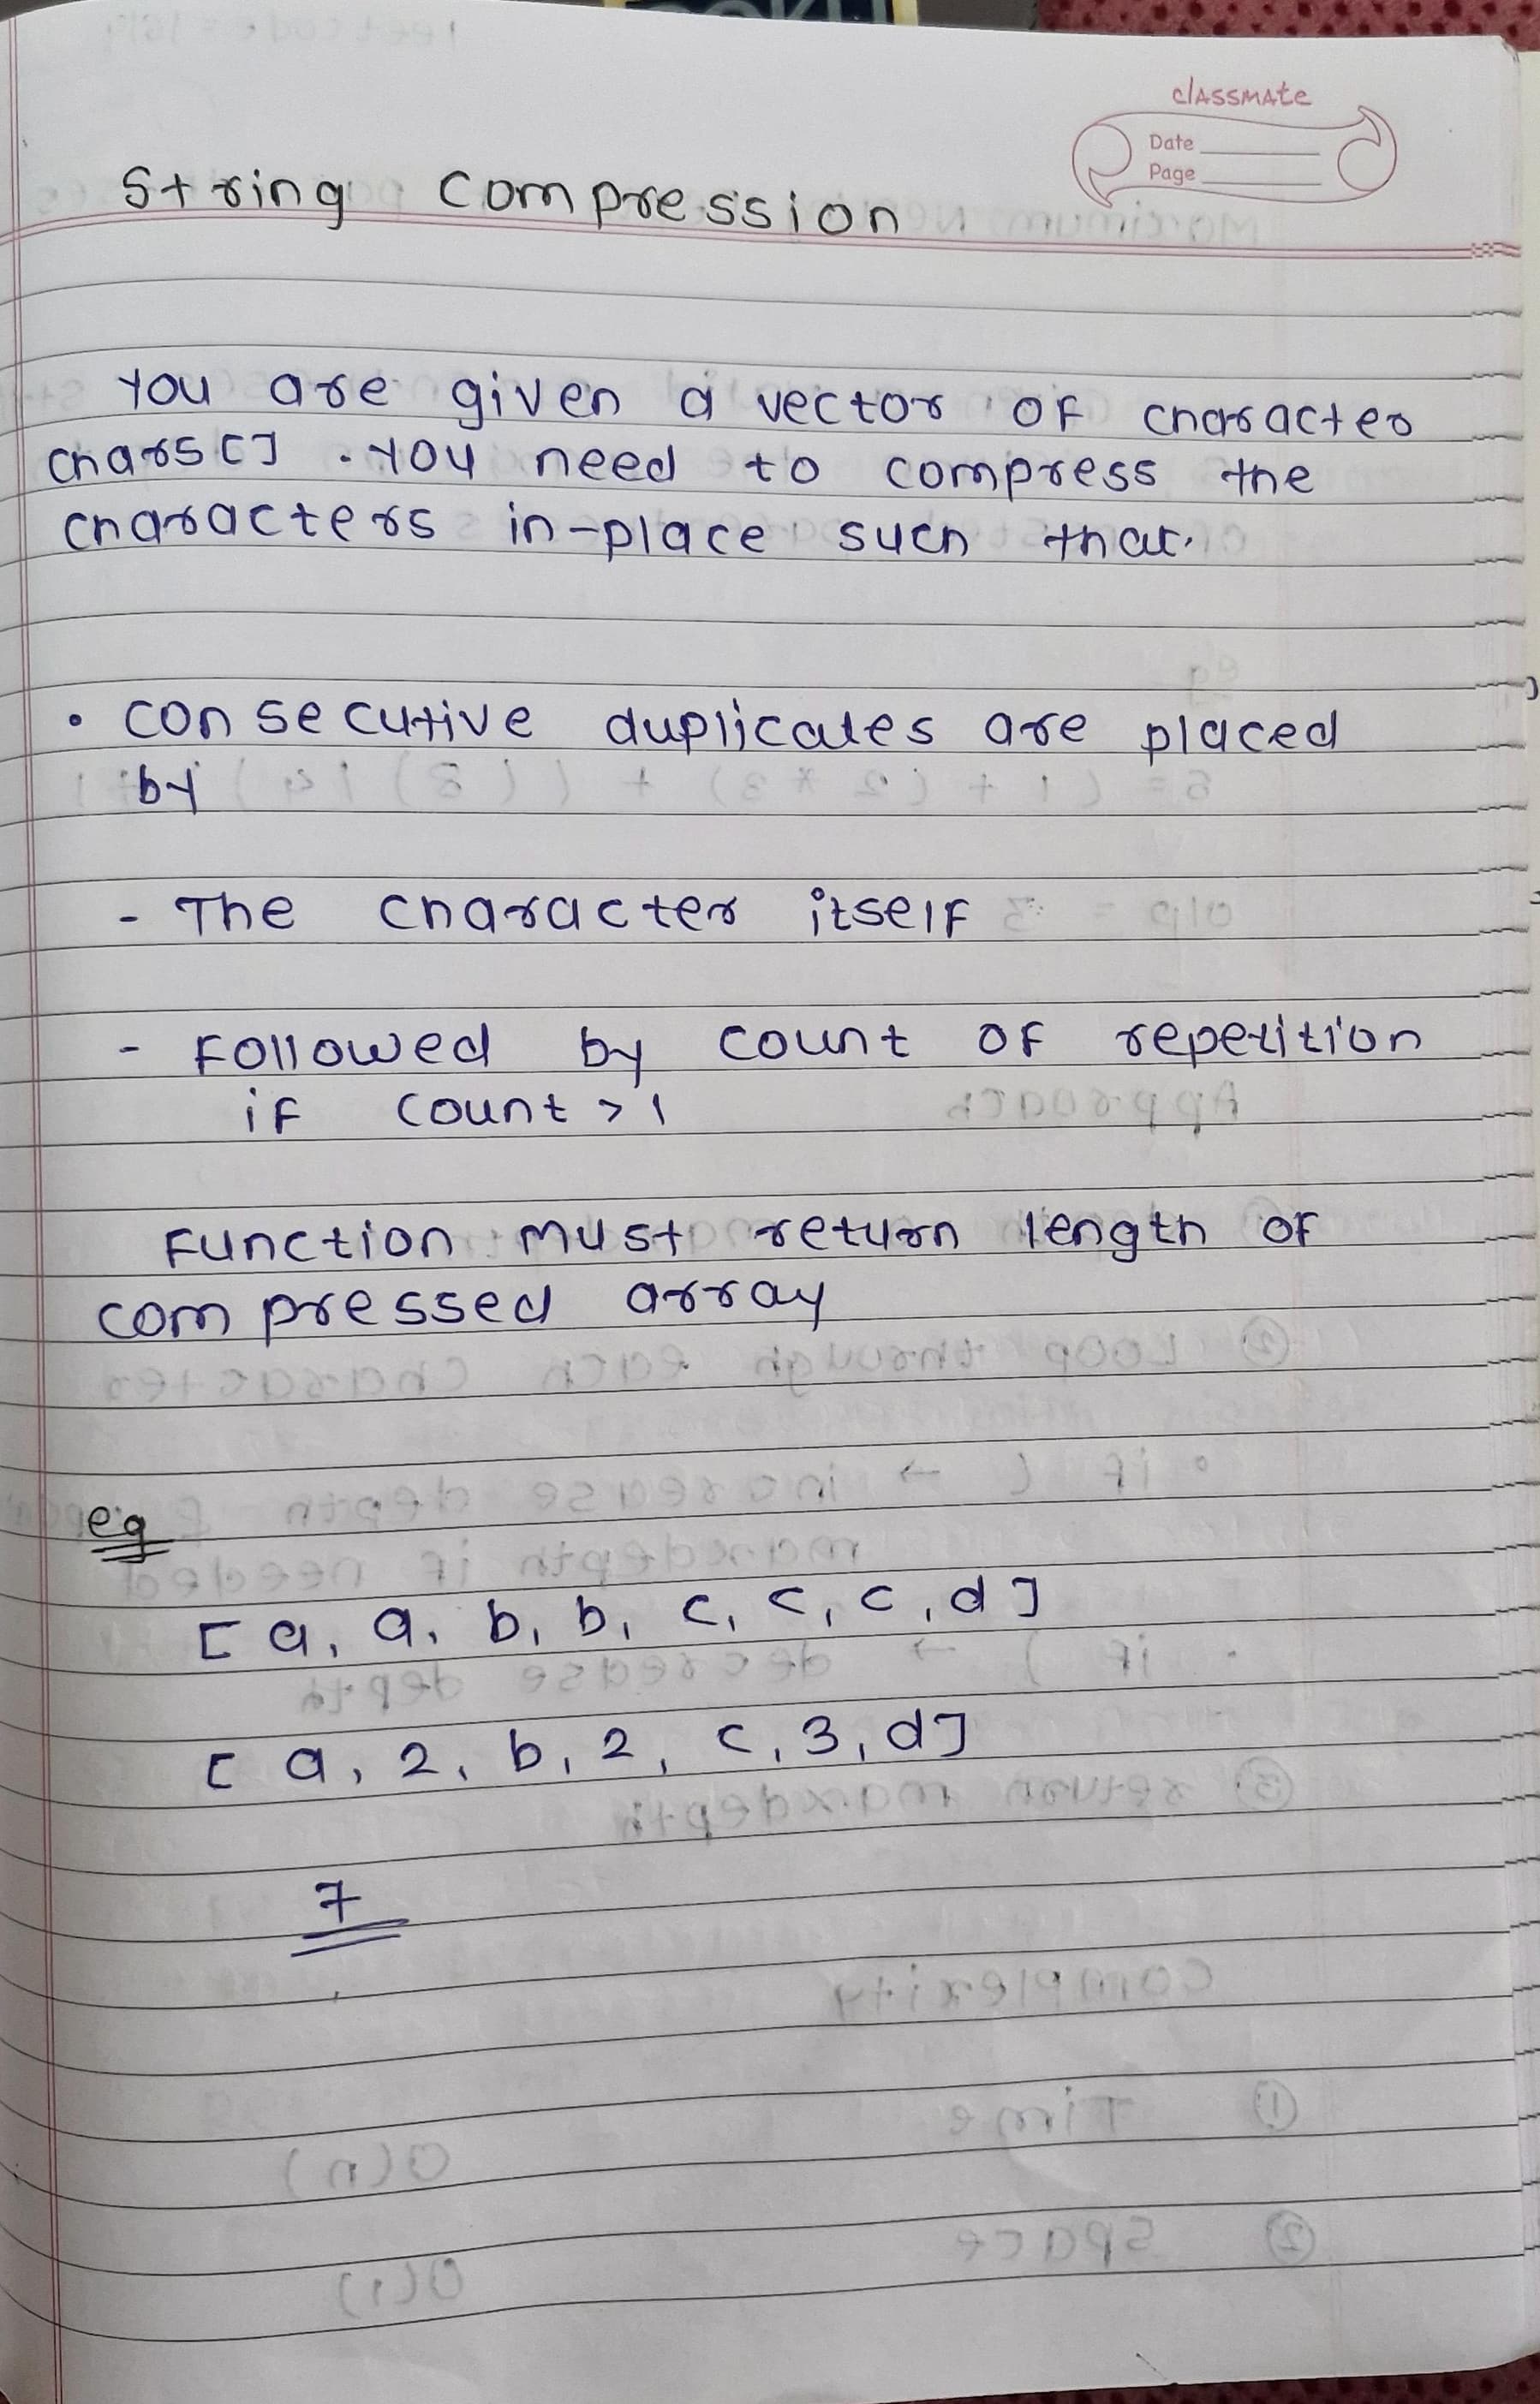 classmate
Date
Page
String Compression
You are given a vector of character
chars[] . You need to compress the
characters in-place such that.
• consecutive duplicates are placed
by
- The character itself
- Followed by count of repetition
if count > 1
Function must return length of
compressed array
eg
[ a, a, b, b, c, c, c, d ]
[ a, 2, b, 2, c, 3, d ]
7